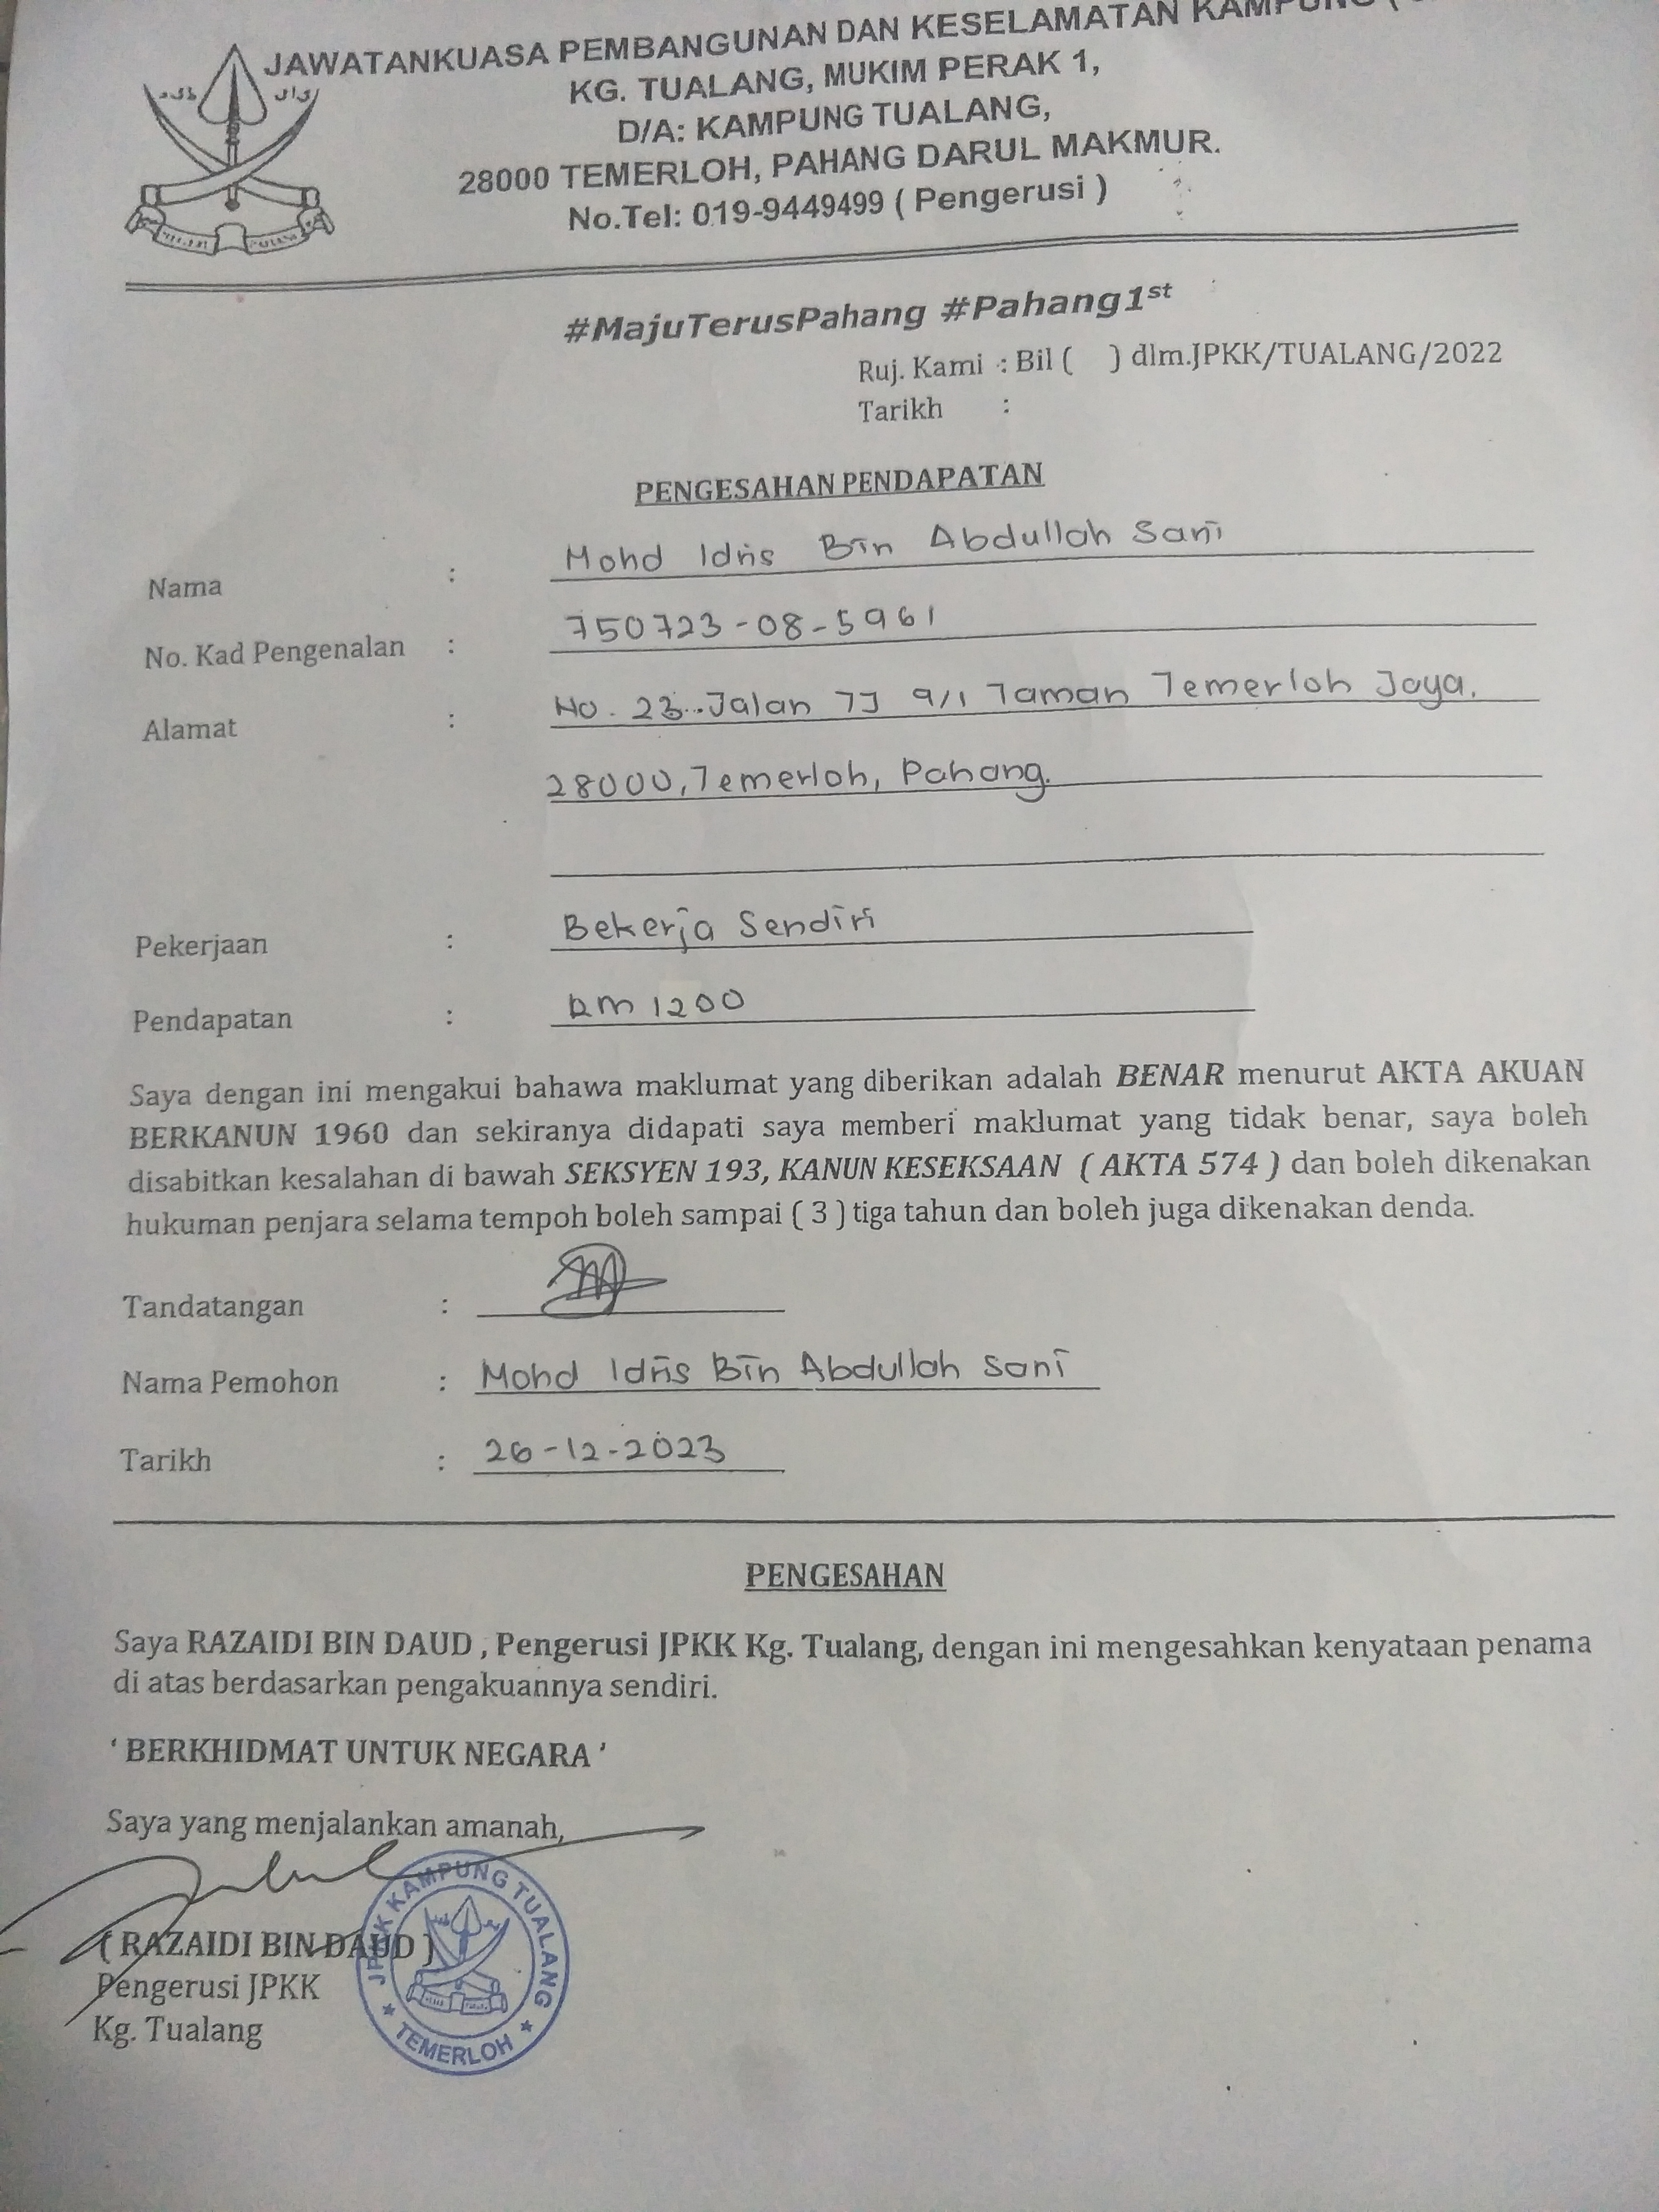 JAWATANKUASA PEMBANGUNAN DAN KESELAMATAN KAMPUNG (
KG. TUALANG, MUKIM PERAK 1,
D/A: KAMPUNG TUALANG,
28000 TEMERLOH, PAHANG DARUL MAKMUR.
No.Tel: 019-9449499 ( Pengerusi )
#MajuTerusPahang #Pahang1st
Ruj. Kami : Bil ( ) dlm.JPKK/TUALANG/2022
Tarikh :
PENGESAHAN PENDAPATAN
Nama : Mohd Idris Bin Abdullah Sani
No. Kad Pengenalan : 750723-08-5961
Alamat : No. 23..Jalan TJ 9/1 Taman Temerloh Jaya,
28000, Temerloh, Pahang.
Pekerjaan : Bekerja Sendiri
Pendapatan : RM 1200
Saya dengan ini mengakui bahawa maklumat yang diberikan adalah BENAR menurut AKTA AKUAN
BERKANUN 1960 dan sekiranya didapati saya memberi maklumat yang tidak benar, saya boleh
disabitkan kesalahan di bawah SEKSYEN 193, KANUN KESEKSAAN ( AKTA 574 ) dan boleh dikenakan
hukuman penjara selama tempoh boleh sampai ( 3 ) tiga tahun dan boleh juga dikenakan denda.
Tandatangan :
Nama Pemohon : Mohd Idris Bin Abdullah Sani
Tarikh : 26-12-2023
PENGESAHAN
Saya RAZAIDI BIN DAUD , Pengerusi JPKK Kg. Tualang, dengan ini mengesahkan kenyataan penama
di atas berdasarkan pengakuannya sendiri.
‘ BERKHIDMAT UNTUK NEGARA ’
Saya yang menjalankan amanah,
( RAZAIDI BIN DAUD )
Pengerusi JPKK
Kg. Tualang
JPKK KAMPUNG TUALANG
★ TEMERLOH ★